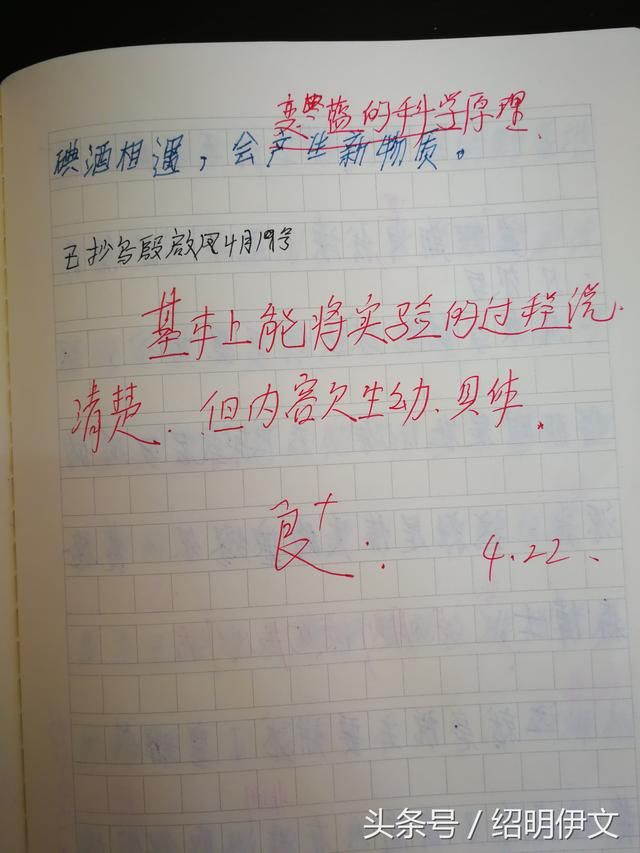 变蓝的科学原理.
碘酒相遇，会产生新物质。
4月19号
基本上能将实验的过程说
清楚.但内容欠生动.具体.
良+
4.22.
头条号 / 绍明伊文